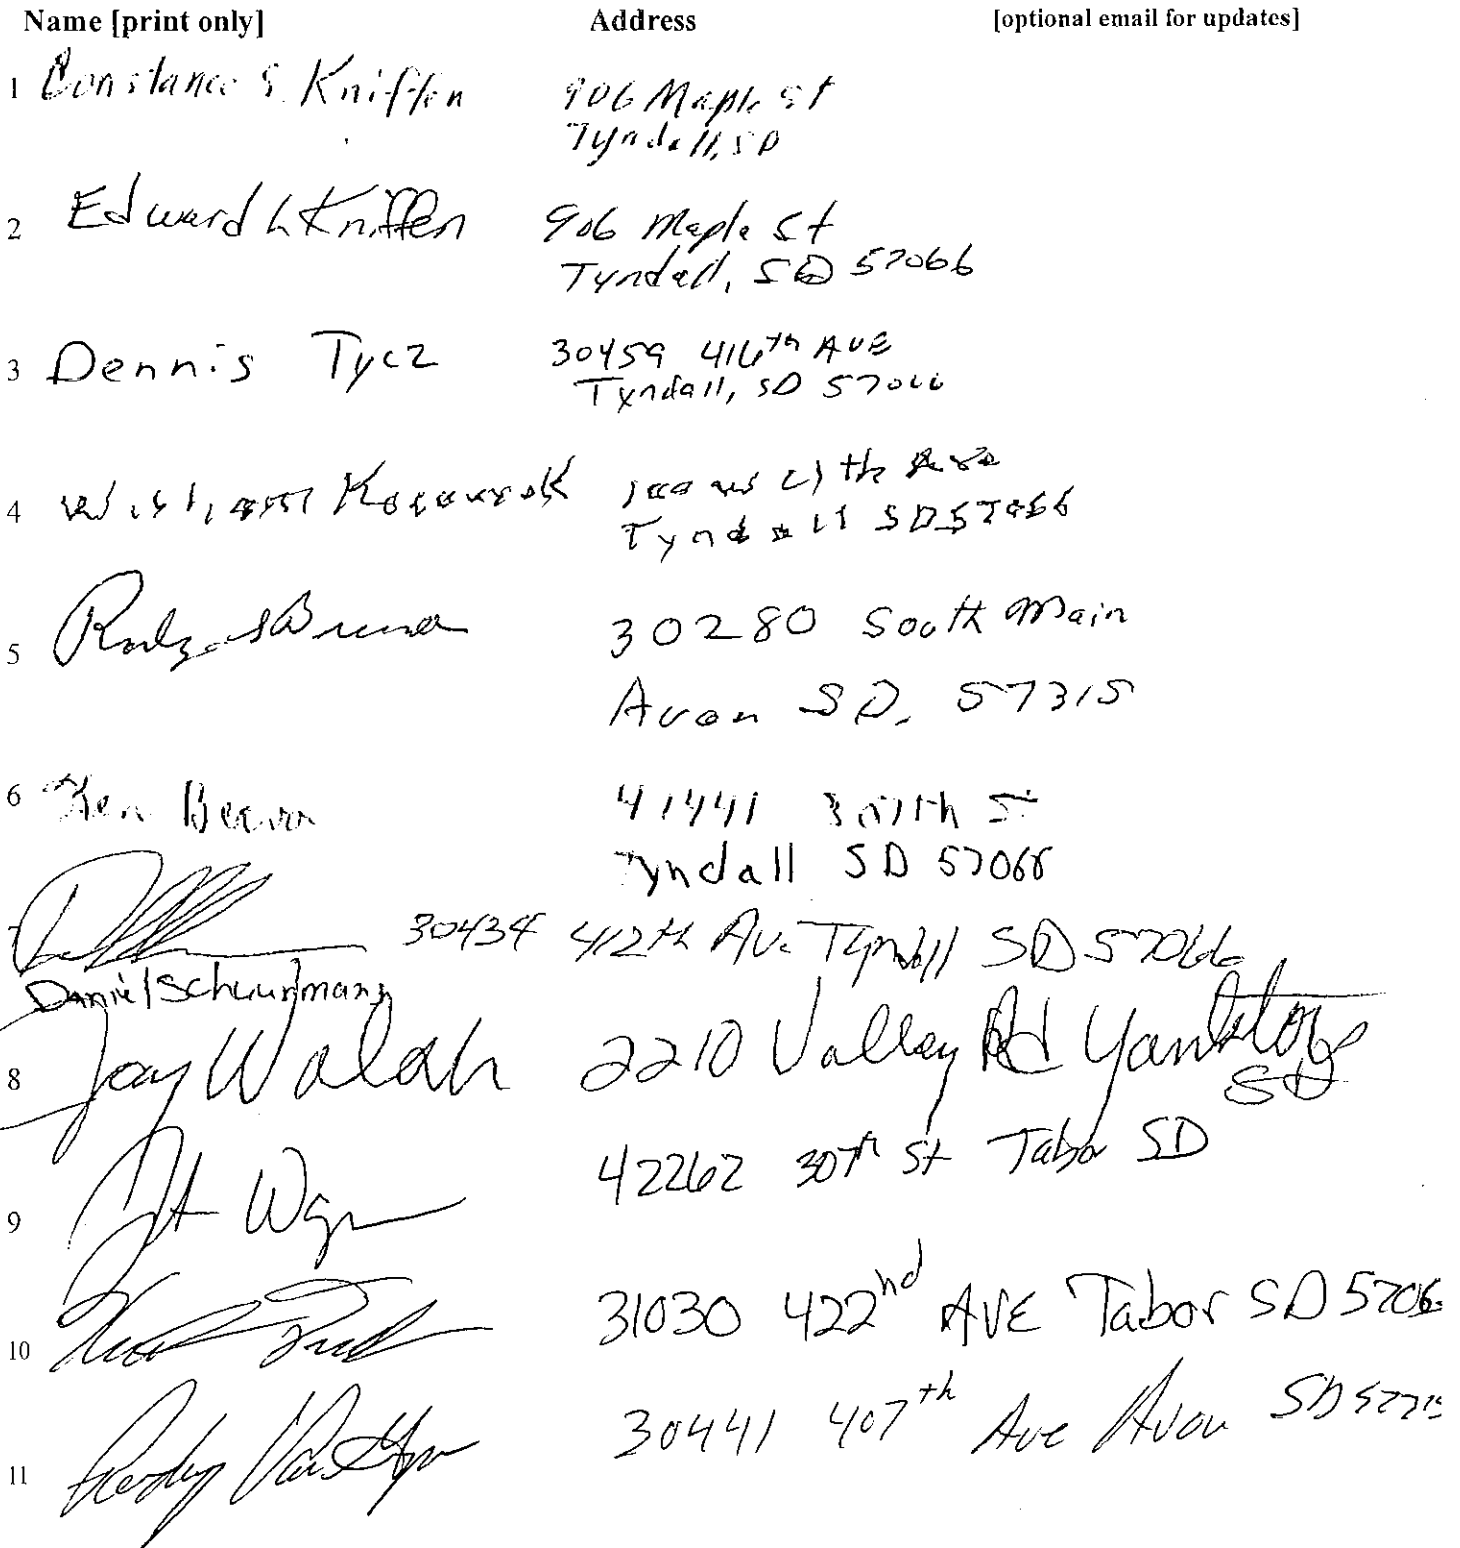 Name [print only] Address [optional email for updates]
1 Constance S. Kniffen 906 Maple St
Tyndall, SD
2 Edward L Kniffen 906 Maple St
Tyndall, SD 57066
3 Dennis Tycz 30459 416th AVE
Tyndall, SD 57066
4 William Kocourek th Ave
Tyndall SD 57066
5 30280 South Main
Avon SD. 57315
6 Ken 41441 St
Tyndall SD 57066
7 30434 412th Av. Tyndall SD 57066
Daniel Schuurmans
8 Jay Walsh 2210 Valley Rd Yankton
SD
9 42262 307th St Tabor SD
10 31030 422nd AVE Tabor SD 5706
11 30441 407th Ave Avon SD